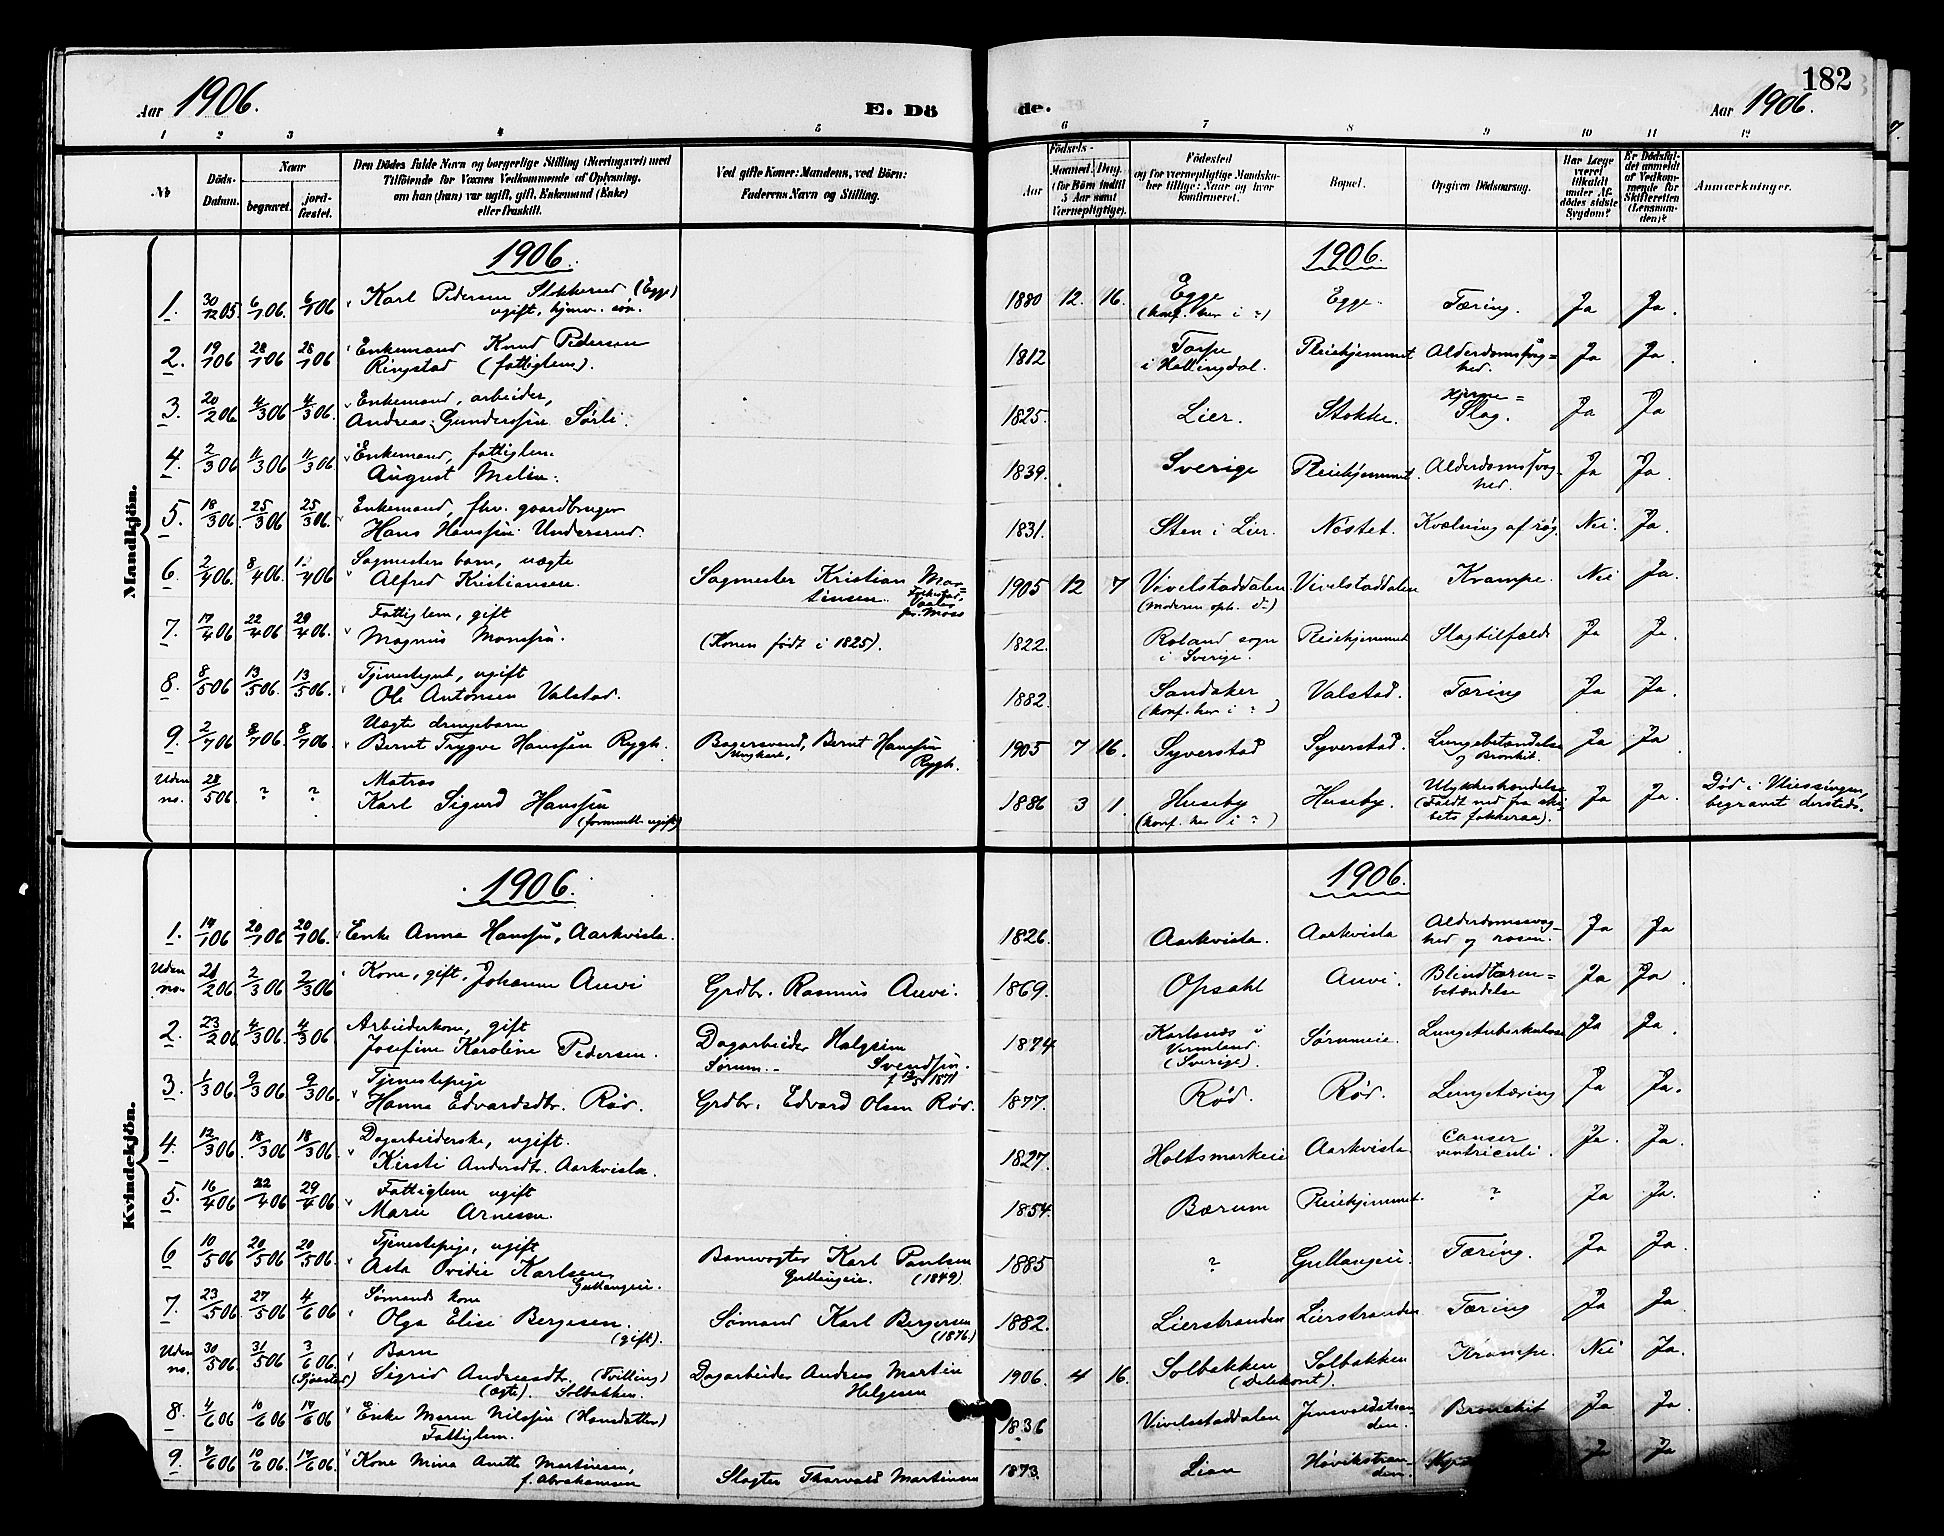 182
Aar 1906. E. Dö de. Aar 1906.
1 2 3 4 5 6 7 8 9 10 11 12
№
Döds-Datum.
Naar
begravet. jordfæstet.
Den Dödes fulde Navn og borgerlige Stilling (Næringsvei) med
Tilföiende for Voxnes Vedkommende af Oplysning,
om han (hun) var ugift, gift, Enkemand (Enke)
eller fraskilt.
Ved gifte Koner: Mandens, ved Börn:
Faderens Navn og Stilling.
Födsels-
Aar Maaned. Dag.
(for Börn indtil
5 Aar samt
Værnepligtige).
Födested
og for værnepligtige Mandskaber tillige: Naar og hvor
konfirmeret.
Bopæl.
Opgiven Dödsaarsag.
Har Læge
været
tilkaldt
under Afdödes sidste
Sygdom?
Er Dödsfaldet anmeldt
af Vedkommende for
Skifteretten
(Lensmanden)?
Anmærkninger.
Mandkjön.
1906. 1906.
1. 30/12 05. 6/1 06. 6/1 06 Karl Pedersen Stokkerud (Egge) 1880 12. 16. Egge Egge. Tæring. Ja Ja.
ugift, hjmv. søn. (konf. her i ?)
2. 19/1 06 28/1 06 28/1 06 Enkemand Knud Pedersen 1812 Torpe Pleiehjemmet Alderdomssvag= Ja Ja.
Ringstad (fattiglem). i Hallingdal. hed.
3. 20/2 06 4/3 06 4/3 06. Enkemand, arbeider, 1825 Lier. Stokke. Hjerne= Ja Ja
Andreas Gunderssøn Sørli. Slag.
4. 2/3 06 11/3 06 11/3 06. Enkemand, fattiglem. 1839. Sverige Pleiehjemmet. Alderdomssvag Ja Ja.
August Melin. hed.
5. 18/3 06. 25/3 06 25/3 06. Enkemand, fhv. gaardbruger 1831. Sten i Lier. Nöstet. Kvælning af røg. Nei. Ja.
Hans Hanssøn Undersrud.
6. 2/4 06 8/4 06. 4 06 Sagmesters barn, uægte Sagmester Kristian Mar= 1905 12 7 Vivelstaddalen Vivelstaddalen Krampe. Nei Ja.
Alfred Kristiansen. tinsen. Vaaler pr. Moss (moderen oph. d.)
7. 17/4 06 22/4 06 29/4 06. Fattiglem, gift (Konen født i 1825). 1822. Roland sogn Pleiehjemmet Slagtilfælde Ja Ja.
Magnus Monssøn. i Sverige.
8. 8/5 06 13/5 06. 13/5 06. Tjenestegut, ugift 1882. Sandaker Valstad. Tæring Ja Ja.
Ole Antonsen Valstad. (konf. her i ?)
9. 2/7 06 8/7 06. 8/7 06. Uægte drengebarn Bagersvend, Bernt Hanssøn 1905 7 16. Syverstad Syverstad. Lungebetændelse Ja Ja
Bernt Trygve Hanssøn Rygh. Ungkarl, Rygh. og Bronkit.
Uden no. 28/5 06. ? ? Matros 1886 3 1. Huseby Huseby. Ulykkeshændelse Ja Ja. Død i Vliessingen,
Karl Sigurd Hanssøn (faldt ned fra ski- begravet dersteds.
(formentl. ugift) (konf. her i ?) bets fokkeraa).
Kvindekjön.
1906. 1906.
1. 14/1 06 20/1 06 20/1 06. Enke Anna Hanssøn, Aarkvisla. 1826. Aarkvisla. Aarkvisla Alderdomssvag- Ja Ja
hed og rosen.
Uden no. 21/2 06 2/3 06 2/3 06 Kone, gift, Johanne Auvi Grdbr. Rasmus Auvi. 1869. Opsahl Auvi. Blindtarm= Ja Ja
betændelse
2. 23/2 06 4/3 06 4/3 06 Arbeiderkone, gift Dagarbeider Halgrim 1874 Karlsnäs i Sørumeie. Lungetuberkulose Ja Ja.
Josefine Karoline Pedersen. Sørum.. Svendsøn. Vermland.
(Sverige).
f. 1871
3. 1/3 06 9/3 06 9/3 06. Tjenestepige Grdbr. Edvard Olsen Rød. 1877. Rød. Rød. Lungetæring Ja Ja.
Hanna Edvardsdtr. Rød.
4. 12/3 06. 18/3 06 18/3 06. Dagarbeiderske, ugift. 1827. Holtsmarkeie Aarkvisla Canser Ja. Ja.
Kirsti Andersdt. Aarkvisla. ventriculi.
5. 16/4 06 22/4 06 29/4 06. Fattiglem ugift 1854. Bærum Pleiehjemmet. ? Ja Ja.
Marie Arnesen.
6 10/5 06. 20/5 06 20/5 06. Tjenestepige, ugift Banevogter Karl Paulsen 1885 ? Gullaugeie. Tæring. Ja Ja.
Asta Ovidie Karlsen Gullaugeie. (1849)
Gullaugeie.
7. 23/5 06. 27/5 06. 4/6 06 Sømands kone Sømand Karl Bergersen 1882. Lierstranden Lierstranden Tæring Ja Ja.
Olga Elise Bergesen. (1876.)
(gift).
Uden no. 30/5 06 31/5 06 3/6 06. Barn Dagarbeider Andreas Martin 1906. 4 16. Solbakken Solbakken Krampe. Nei Ja.
Sigrid Andreasdt. (Tvilling) Helgesen
(ægte). Solbakken.
8. 4/6 06 10/6 06 17/6 06 Enke Maren Nilssøn (Hansdatter) 1836 Vivelstaddalen Jensvoldstran Bronchit Ja Ja.
Fattiglem. den.
9. 7/6 06 10/6 06. 17/6 06. Kone Mina Anette Martinsen, Slagter Thorvald Martinsen 1873. Lian Høvikstran Ja Ja
f. Abrahamsen den.